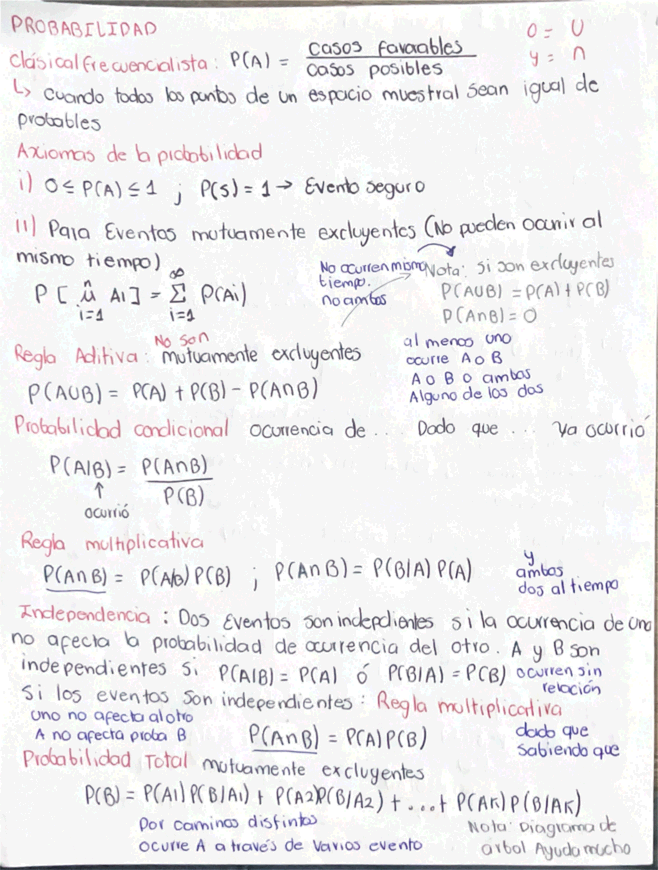 PROBABILIDAD
O = U
y = ∩
clásica/frecuencialista: P(A) = casos favorables / casos posibles
↳ cuando todos los puntos de un espacio muestral sean igual de
probables
Axiomas de la probabilidad
i) 0 ≤ P(A) ≤ 1 ; P(S) = 1 → Evento seguro
ii) Para Eventos mutuamente excluyentes (No pueden ocurrir al
mismo tiempo)
No ocurren mismo
tiempo.
no ambos
Nota: si son excluyentes
P(A∪B) = P(A) + P(B)
P(A∩B) = 0
P [ ∪ Ai ] = Σ P(Ai)
n ∞
i=1 i=1
Regla Aditiva: No son mutuamente excluyentes
P(A∪B) = P(A) + P(B) - P(A∩B)
al menos uno
ocurre A o B
A o B o ambas
Alguno de los dos
Probabilidad condicional ocurrencia de ... Dado que ... ya ocurrió
P(A|B) = P(A∩B) / P(B)
↑
ocurrió
Regla multiplicativa
P(A∩B) = P(A/B) P(B) ; P(A∩B) = P(B/A) P(A)
y
ambos
dos al tiempo
Independencia: Dos Eventos son indepdientes si la ocurrencia de uno
no afecta la probabilidad de ocurrencia del otro. A y B son
independientes si P(A|B) = P(A) ó P(B|A) = P(B) ocurren sin
relación
Si los eventos son independientes: Regla multiplicativa
uno no afecta al otro
A no afecta proba B
P(A∩B) = P(A) P(B)
dado que
sabiendo que
Probabilidad Total mutuamente excluyentes
P(B) = P(A1) P(B/A1) + P(A2)P(B/A2) + ... + P(AK) P(B/AK)
Por caminos distintos
ocurre A a través de varios evento
Nota: Diagrama de
árbol Ayuda mucho